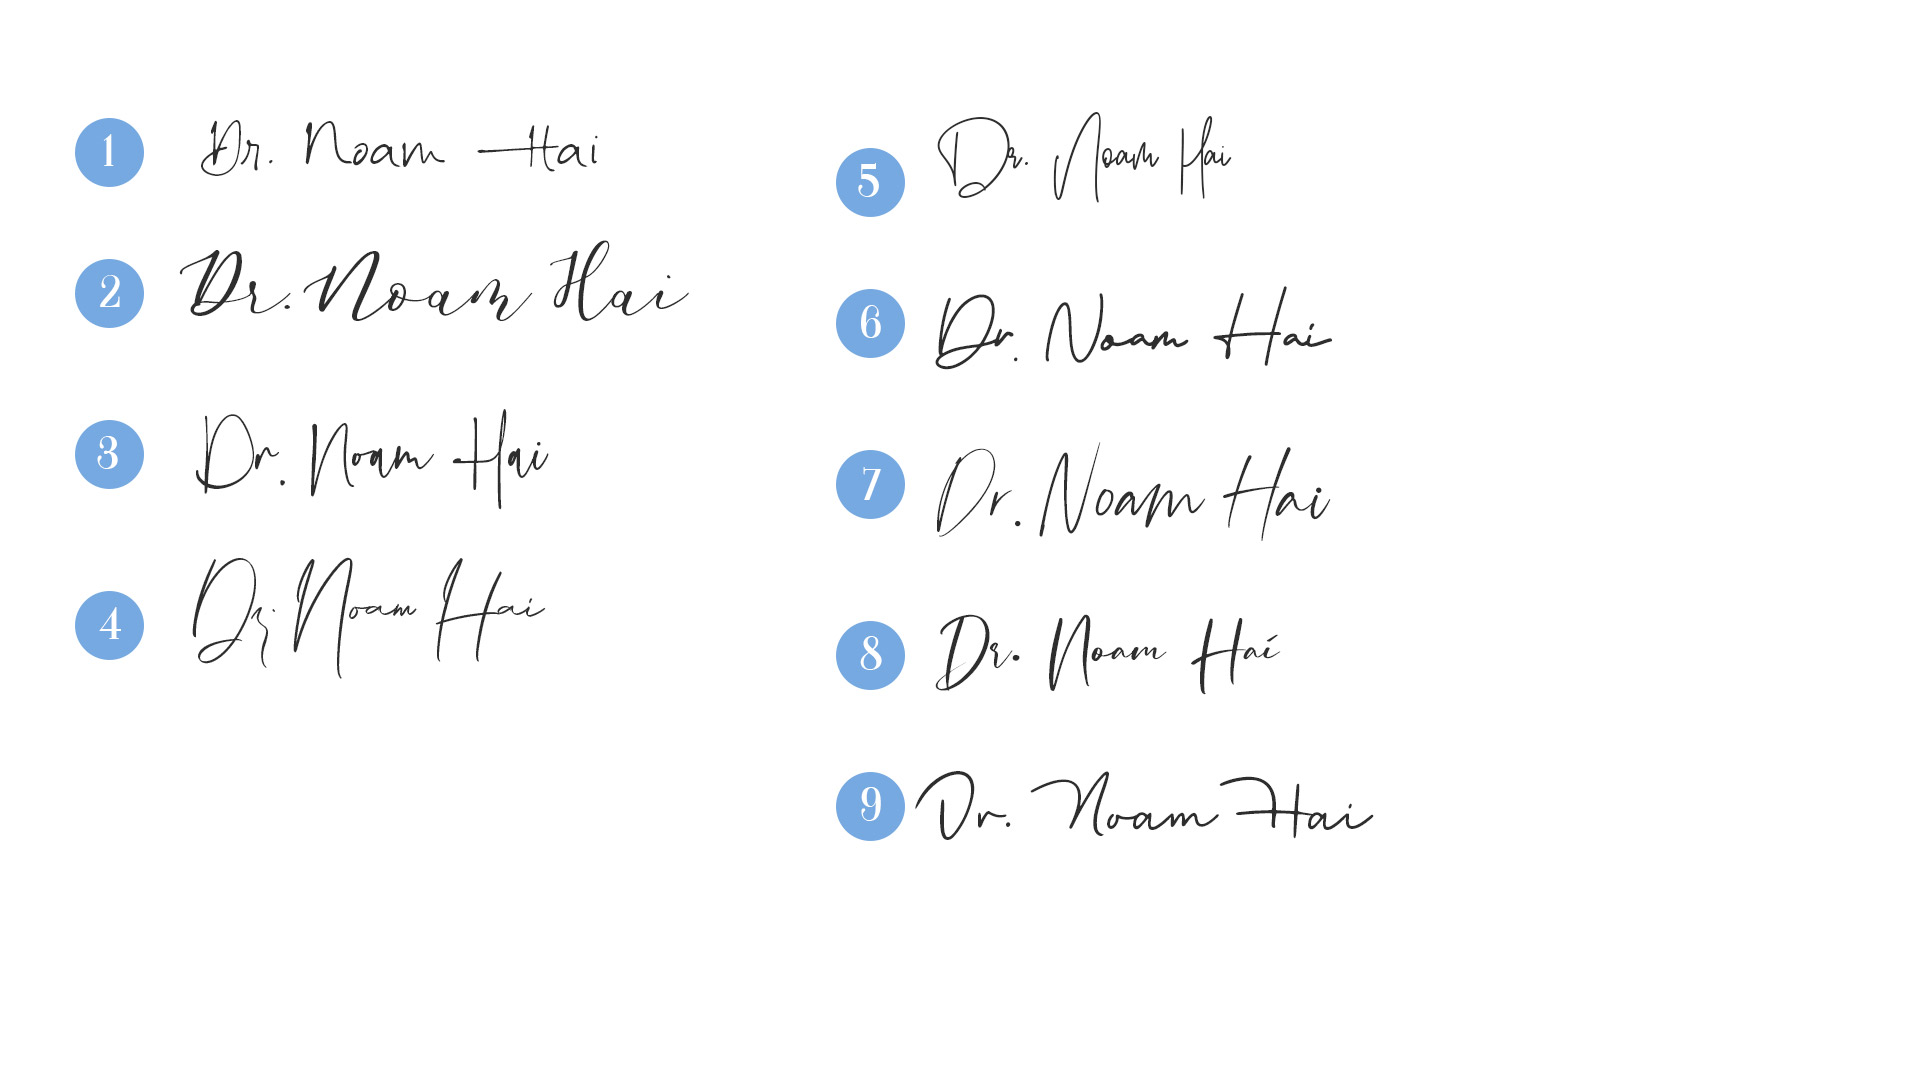 1 Dr. Noam Hai
2 Dr. Noam Hai
3 Dr. Noam Hai
4 Dr. Noam Hai
5 Dr. Noam Hai
6 Dr. Noam Hai
7 Dr. Noam Hai
8 Dr. Noam Hai
9 Dr. Noam Hai